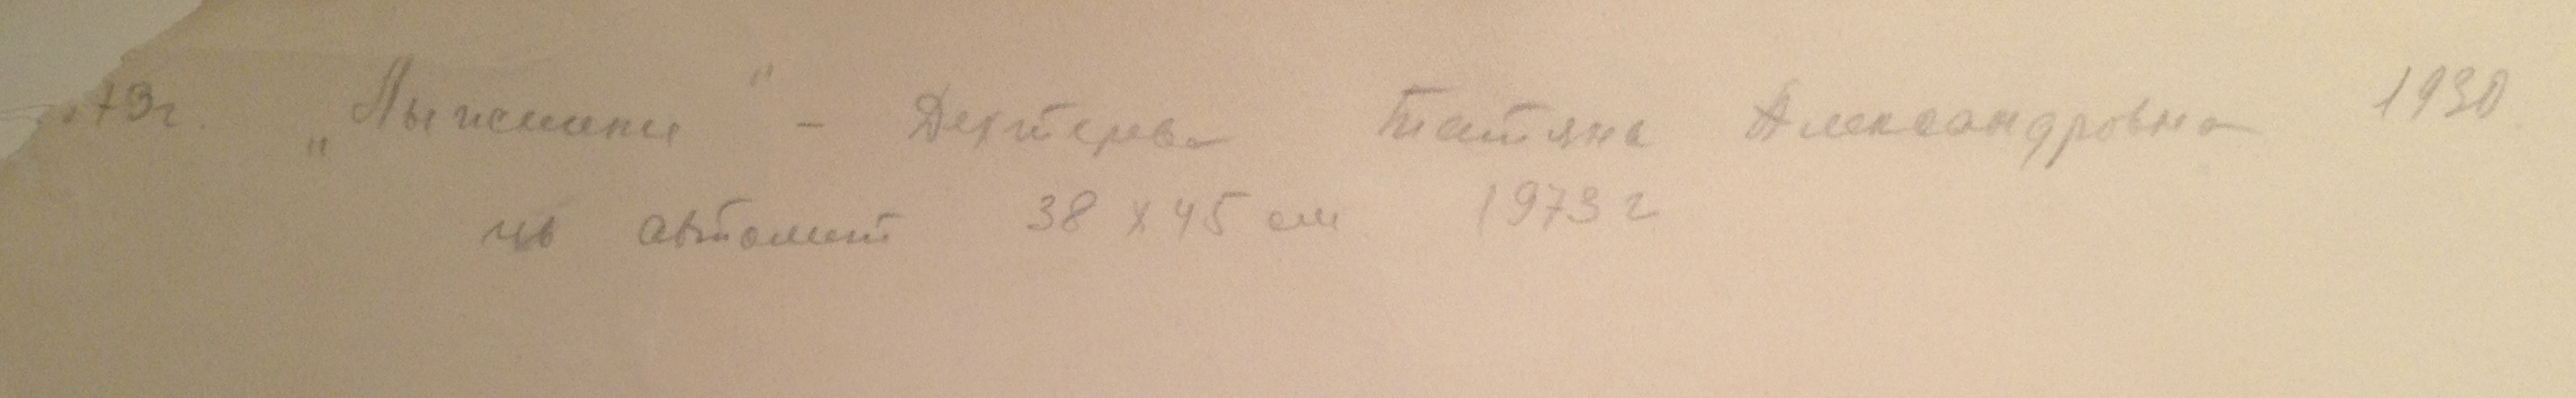 73г. „Лыжники" - Дехтерева Татьяна Александровна 1930
цв автолит 38 х 45 см 1973 г